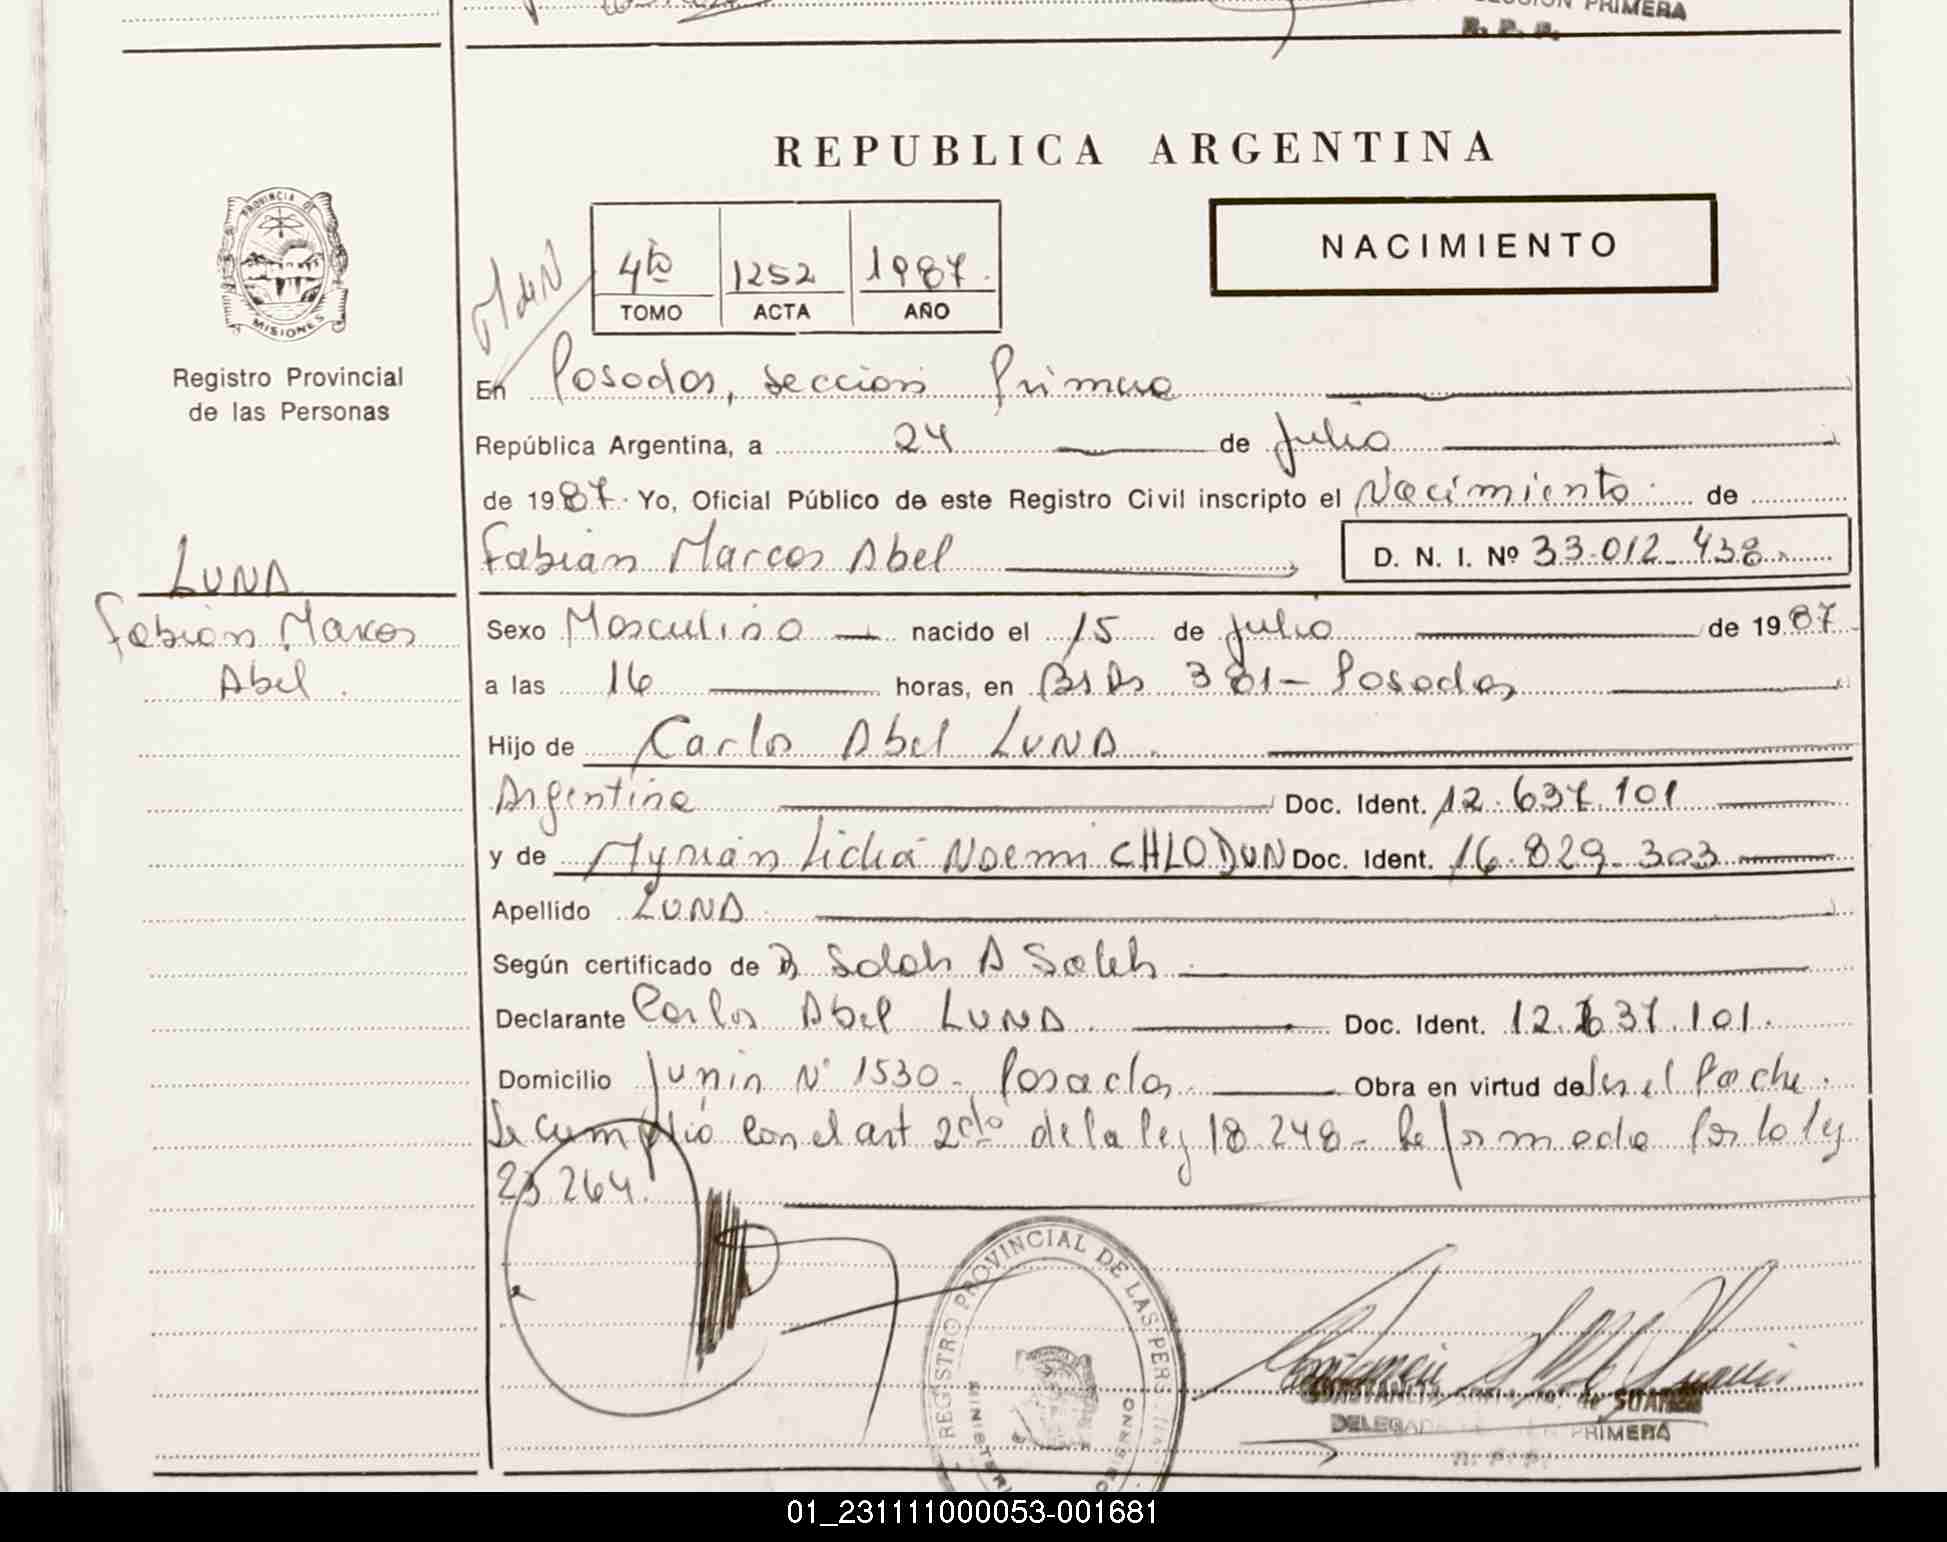 PRIMERA
R. P. P.
REPUBLICA ARGENTINA
PROVINCIA DE
MISIONES
Registro Provincial
de las Personas
4to 1252 1987.
TOMO ACTA AÑO
NACIMIENTO
En Posadas, Sección Primera
República Argentina, a 24 de Julio
de 1987. Yo, Oficial Público de este Registro Civil inscripto el Nacimiento de
Fabián Marcos Abel D. N. I. Nº 33.012.438
LUNA
Fabián Marcos
Abel.
Sexo Masculino nacido el 15 de Julio de 1987
a las 16 horas, en Bs As 381 - Posadas
Hijo de Carlos Abel LUNA.
Argentina Doc. Ident. 12.637.101
y de Myrian Lidia Noemi CHLODUN Doc. Ident. 16.829.303
Apellido LUNA
Según certificado de D Salah A Saleh
Declarante Carlos Abel LUNA Doc. Ident. 12.637.101.
Domicilio Junin Nº 1530 - Posadas Obra en virtud de Ser el Padre.
Se cumplió con el art 2do de la ley 18.248 - Reformada por la ley
23.264.
REGISTRO PROVINCIAL DE LAS PERS
CONSTANCIA de SUAREZ
DELEGADA PRIMERA
01_231111000053-001681